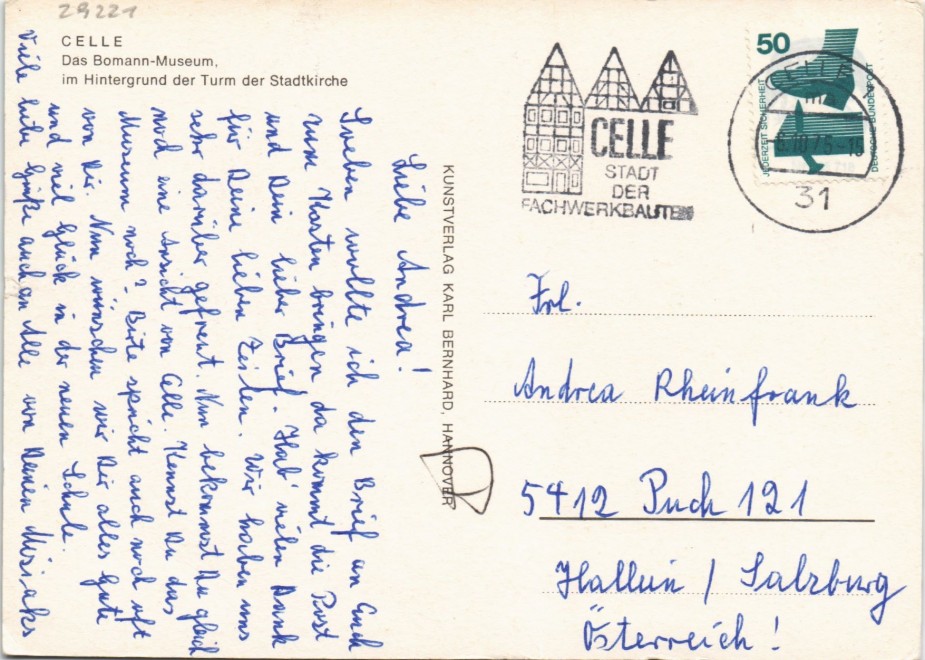 29221
CELLE
Das Bomann-Museum,
im Hintergrund der Turm der Stadtkirche
Liebe Andrea!
Soeben wollte ich den Brief an Euch
zum Kasten bringen da kommt die Post
und Dein lieber Brief. Hab' vielen Dank
für Deine lieben Zeilen. Wir haben uns
sehr darüber gefreut. Nun bekommst Du gleich
noch eine Ansicht von Celle. Kennst Du das
Museum noch? Birte spricht auch noch oft
von Dir. Nun wünschen wir Dir alles Gute
und viel Glück in der neuen Schule.
Viele liebe Grüße auch an Alle von Deinen Misiaks
KUNSTVERLAG KARL BERNHARD, HANNOVER
CELLE
STADT
DER
FACHWERKBAUTEN
50
JEDERZEIT SICHERHEIT
DEUTSCHE BUNDESPOST
CELLE 1
m
10.75-15
31
Frl.
Andrea Rheinfrank
5412 Puch 121
Hallein / Salzburg
Österreich!